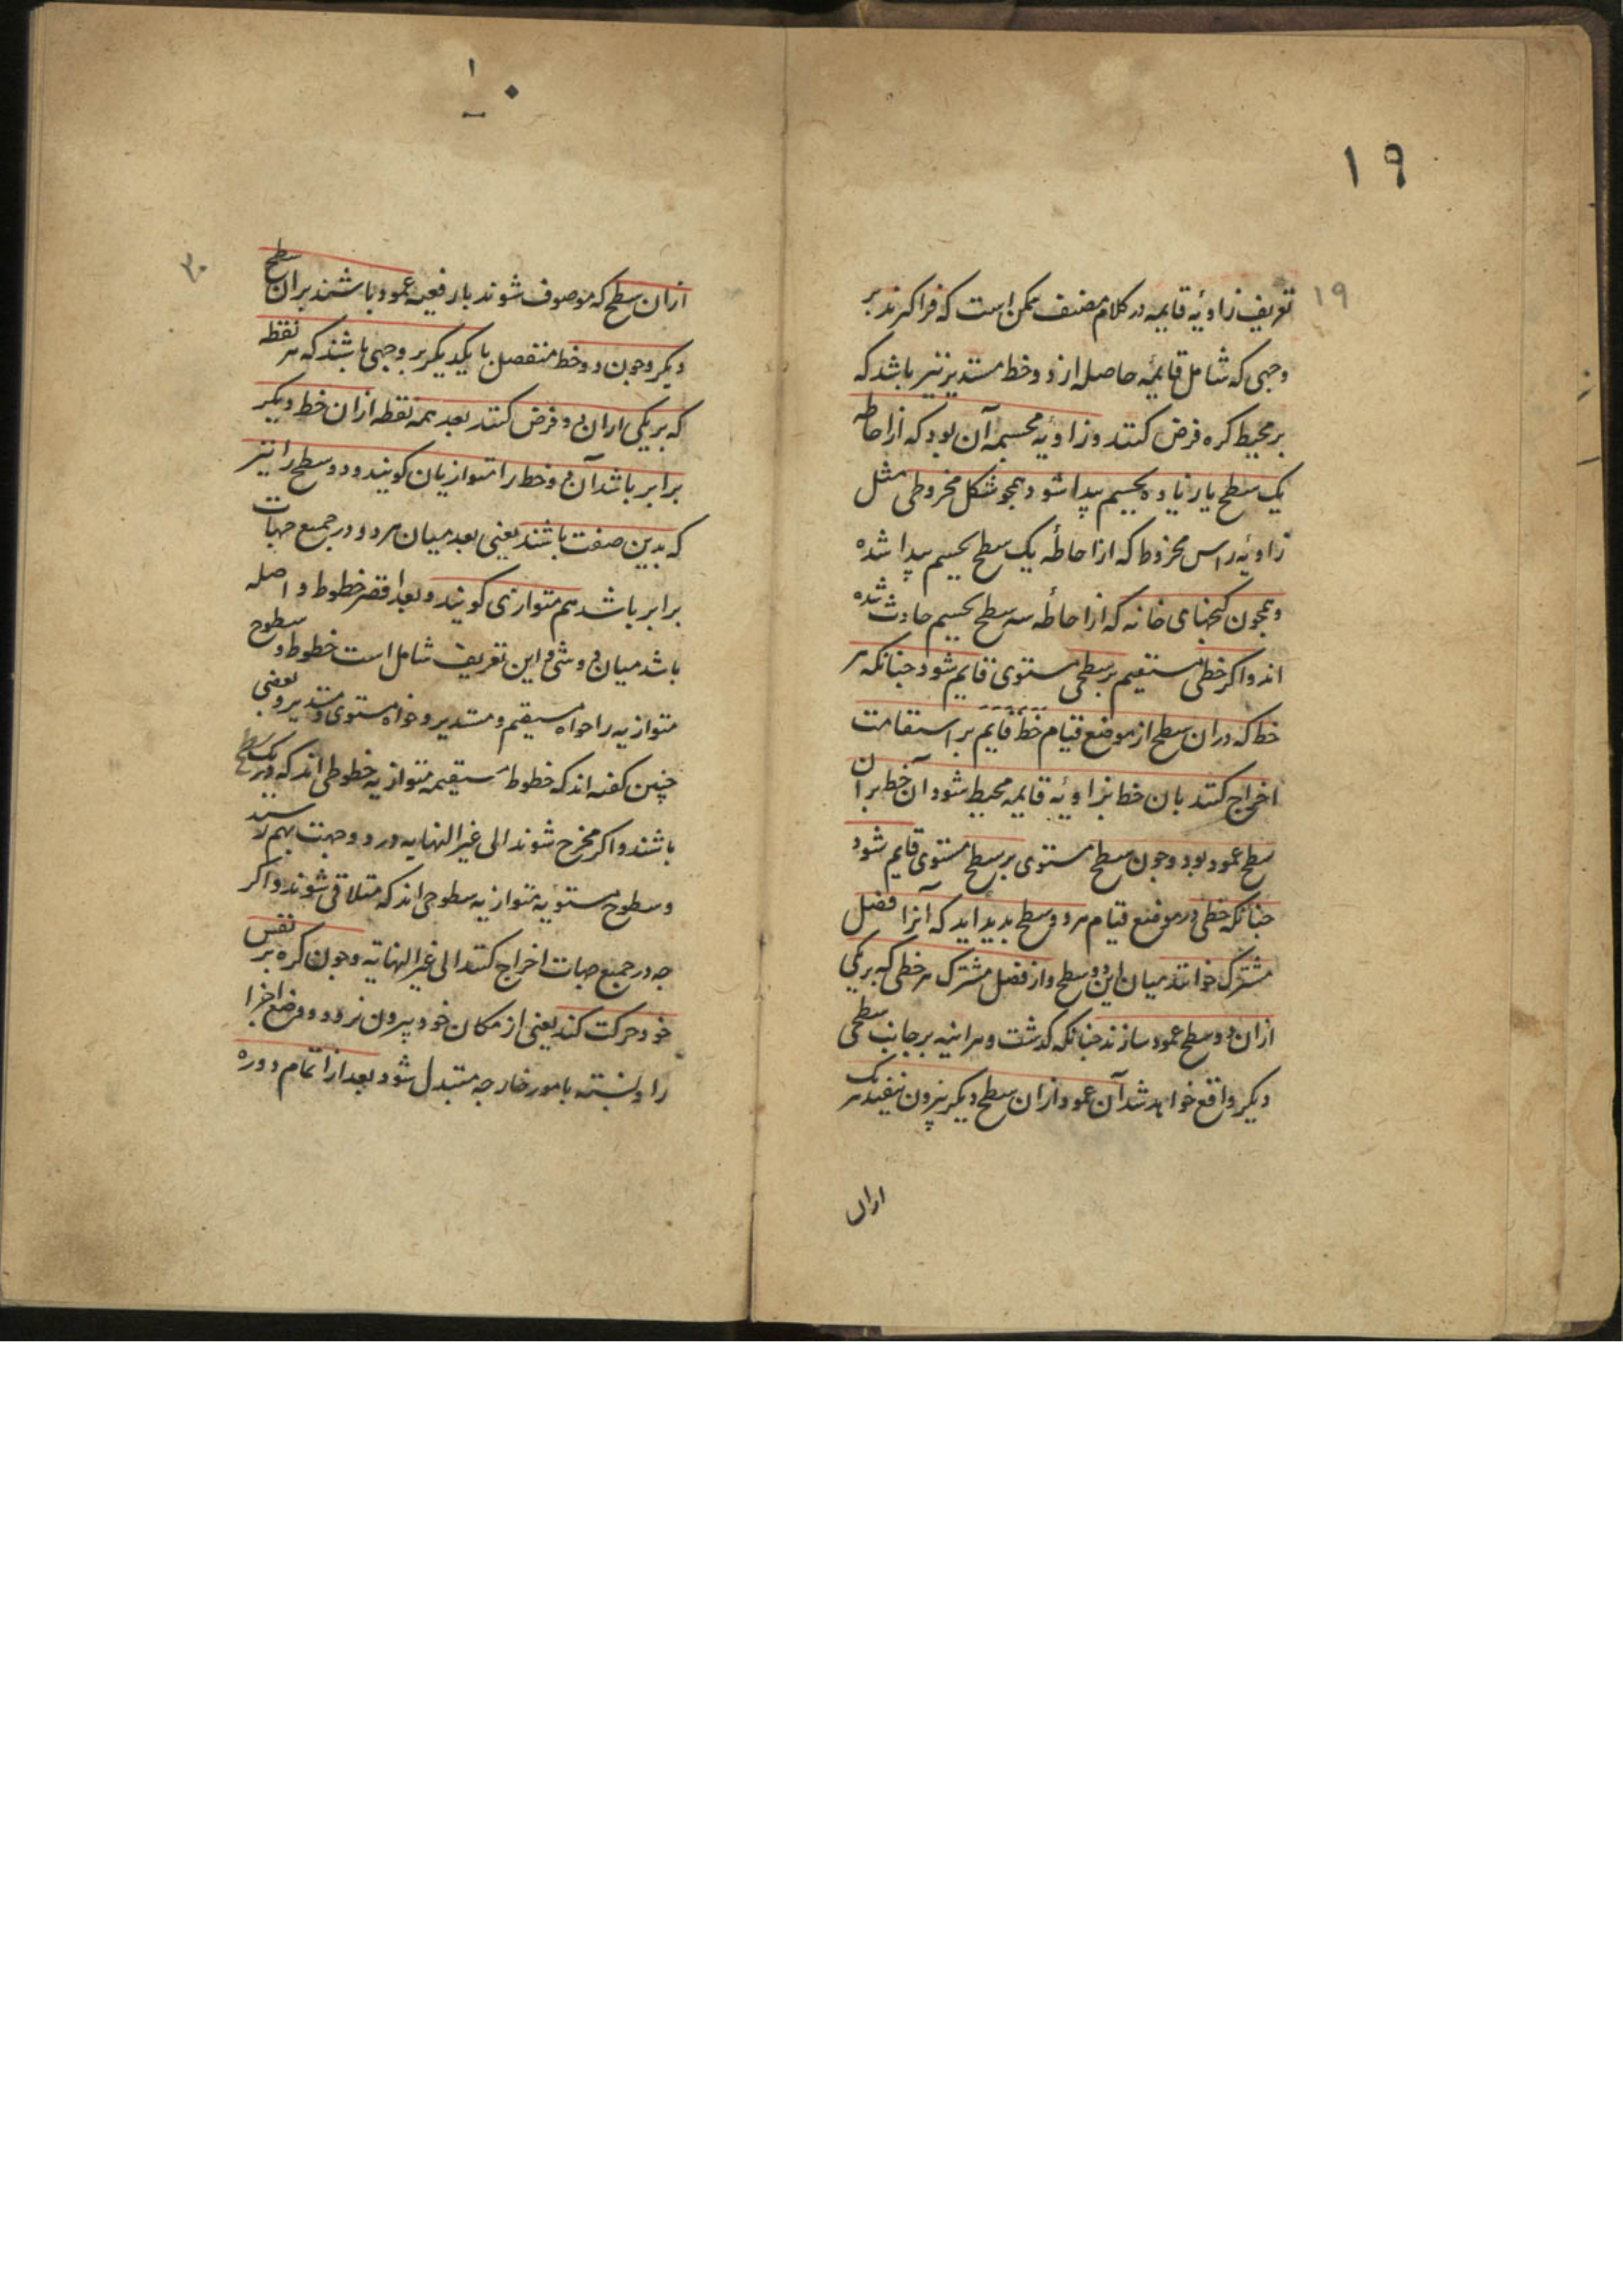 ۱۹
۱۹
تعریف زاویٔه قایمه در کلام مصنف ممکن است که فرا کیرند بر
وجهی که شامل قایمٔه حاصله از دو خط مستدیر نیز باشد که
بر محیط کره فرض کنند و زاویٔه مجسمه آن بود که از احاطه
یک سطح یا زیاده بجسیم پیدا شود همجو شکل مخروطی مثل
زاویٔه راس مخروط که از احاطٔه یک سطح بجسیم پیدا شده
و همجون کنجهای خانه که از احاطٔه سه سطح بجسیم حادث شده
اند و اکر خطی مستقیم بر سطحی مستوی قایم شود جنانکه هر
خط که در ان سطح از موضع قیام خط قایم بر استقامت
اخراج کنند بان خط بزاویٔه قایمه محیط شود آن خط بران
سطح عمود بود و جون سطح مستوی بر سطح مستوی قایم شود
جنانکه خطی در موضع قیام هر دو سطح بدید اید که آنرا فصل
مشترک خوانند میان این دو سطح و از فصل مشترک هر خطی که بر یکی
ازان دو سطح عمود سازند جنانکه کذشت و هراینه بر جانب سطحی
دیکر واقع خواهد شد آن عمود ازان سطح دیکر بیرون نیفتد هر یک
ازان
۱۰
۲۰
ازان سطح که موصوف شوند بارفعیه عمود باشند بران سطح
دیکر و جون دو خط منفصل با یکدیکر بر وجهی باشند که هر نقطه
که بر یکی ازان دو فرض کنند بعد همه نقطه ازان خط دیکر
برابر باشد آن دو خط را متوازیان کویند و دو سطح را نیز
که بدین صفت باشند یعنی بعد میان هر دو در جمیع جهات
برابر باشد هم متوازی کویند و بعد اقصر خطوط واصله
باشد میان دو شی و این تعریف شامل است خطوط و سطوح
متوازیه را خواه مستقیم و مستدیر و خواه مستوی و مستدیر و بعضی
چنین کفته اند که خطوط مستقیمه متوازیه خطوطی اند که در یک سطح
باشند و اکر مخرج شوند الی غیر النهایه در دو جهت بهم نرسند
و سطوح مستویه متوازیه سطوحی اند که متلاقی نشوند و اکر
جه در جمیع جهات اخراج کنند الی غیر النهایه و جون کره بر نفس
خود حرکت کند یعنی از مکان خود بیرون نرود و وضع اجزا
را و نسبته بامور خارجه متبدل شود بعد از اتمام دوره